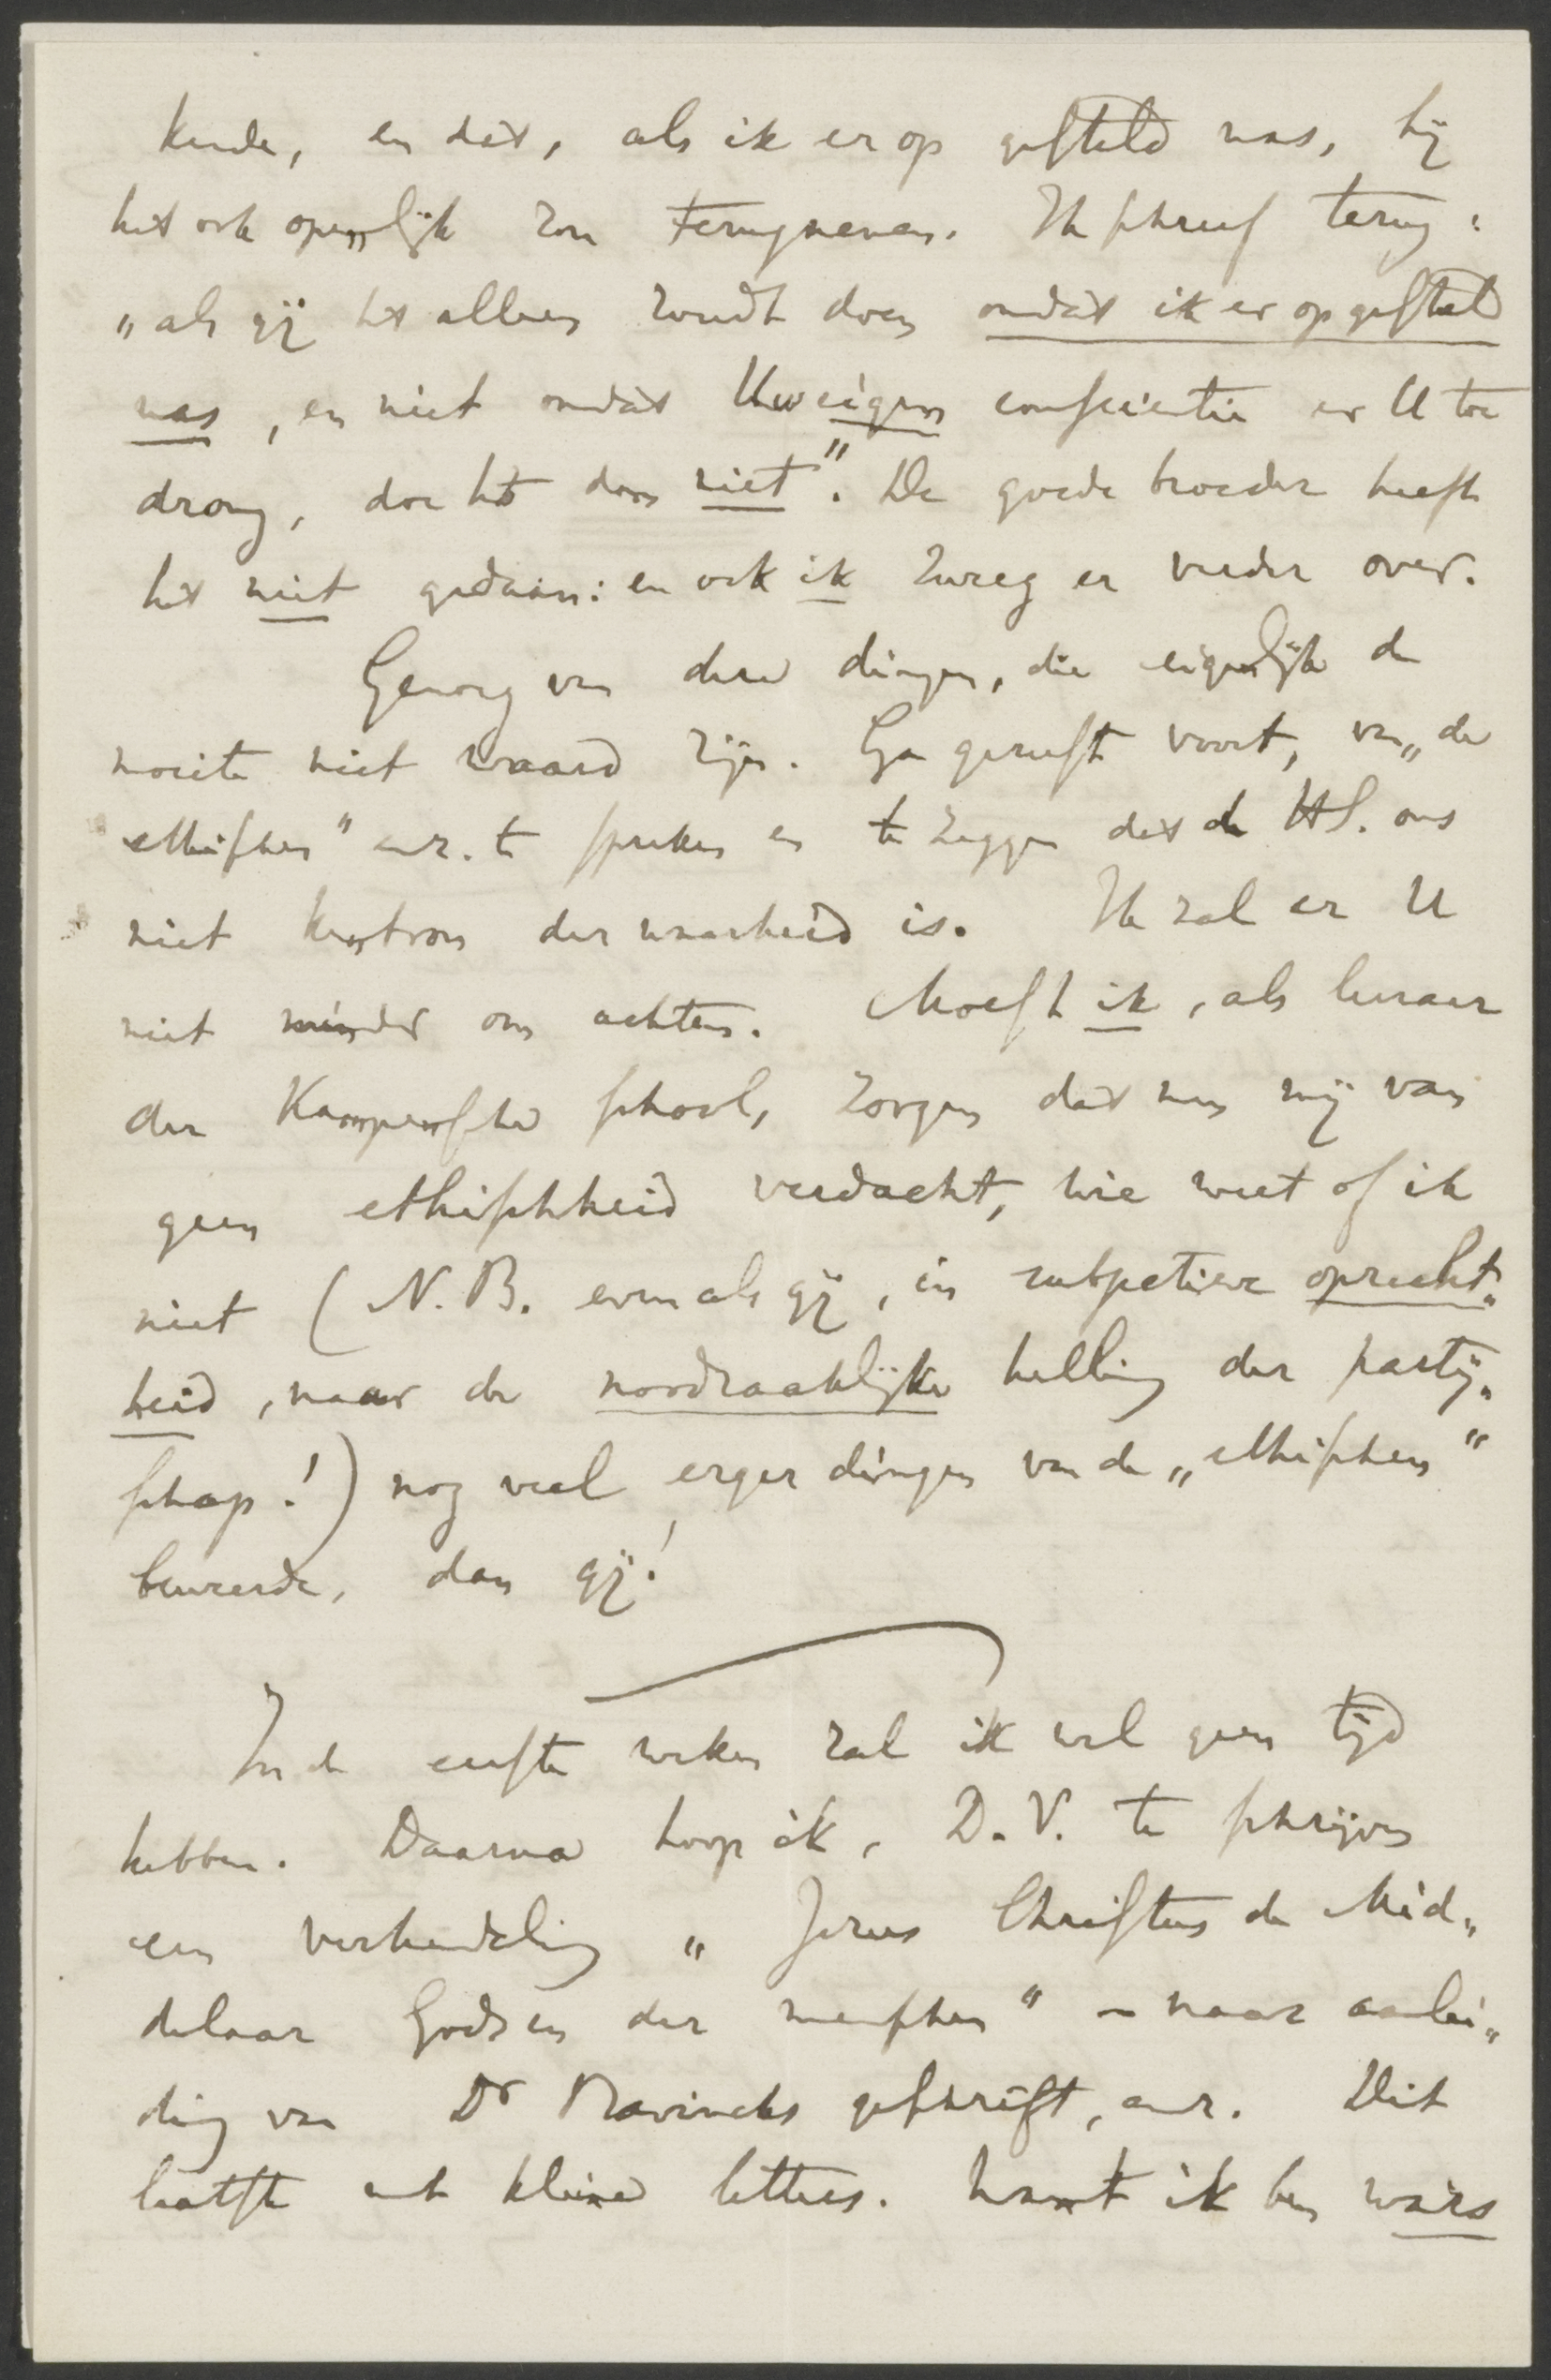 kende, en dat, als ik er op gesteld was, hij
het ook openlijk zou terugnemen. Ik schreef terug:
„als gij het alleen zoudt doen omdat ik er op gesteld
was, en niet omdat Uw eigen conscientie er U toe
drong, doe het dan niet”. De goede broeder heeft
het niet gedaan: en ook ik zweeg er verder over.
Genoeg van deze dingen, die eigenlijk de
moeite niet waard zijn. Ga gerust voort, van „de
ethischen” enz. te spreken en te zeggen dat de H.S. ons
niet kenbron der waarheid is. Ik zal er U
niet minder om achten. Moest ik, als leeraar
der Kamper school, zorgen dat men mij van
geen ethischheid verdacht, wie weet of ik
niet (N.B. even als gij, in subjectieve oprecht„
heid, naar de noodzakelijke helling der partij„
schap!) nog veel erger dingen van de „ethischen”
beweerde, dan gij!
In de eerste weken zal ik wel geen tijd
hebben. Daarna hoop ik, D.V. te schrijven
een verhandeling „Jezus Christus de Mid„
delaar Gods en der menschen” — naar aanlei„
ding van Dr Bavincks geschrift, enz. Dit
laatste met kleine letters. Want ik ben wars